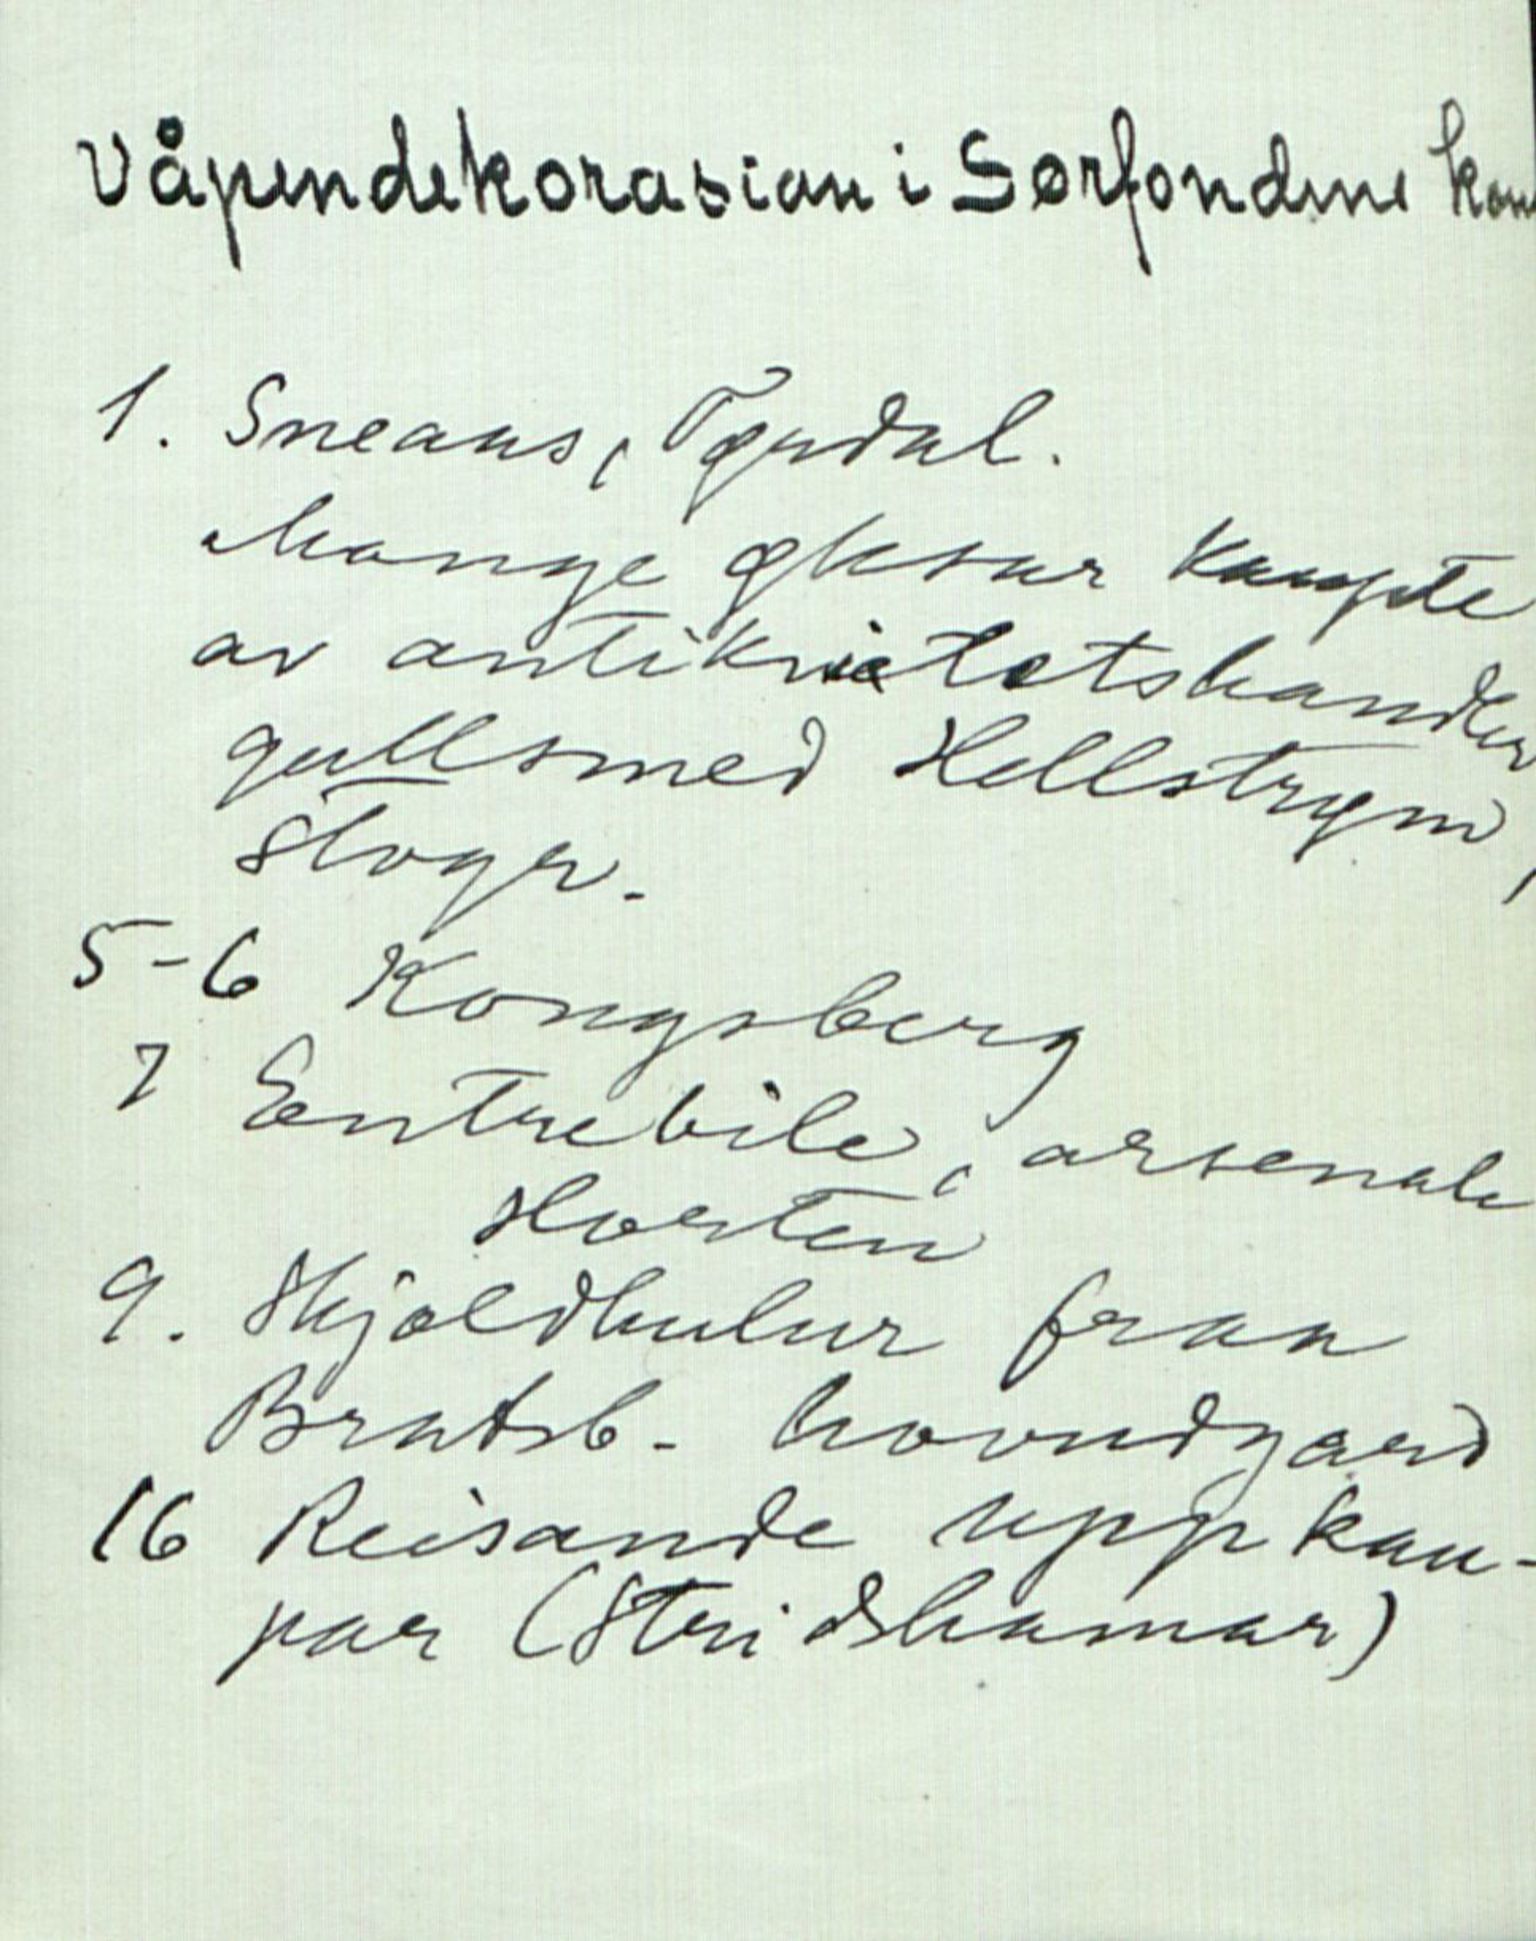 Våpendekorasian i Sørfondene
1. Sneaus, Tørdal.
Mange glasur kaupte
av antikvitetshandlar
gullsmed Hellstrøm,
Stoga.
5-6 Kongsberg
7 Entrebile, arsenale
Horten
9. Skjoldhulur fraa
Bratsb. hovudgard
16 Reisande uppkau-
par (Stridshamar)